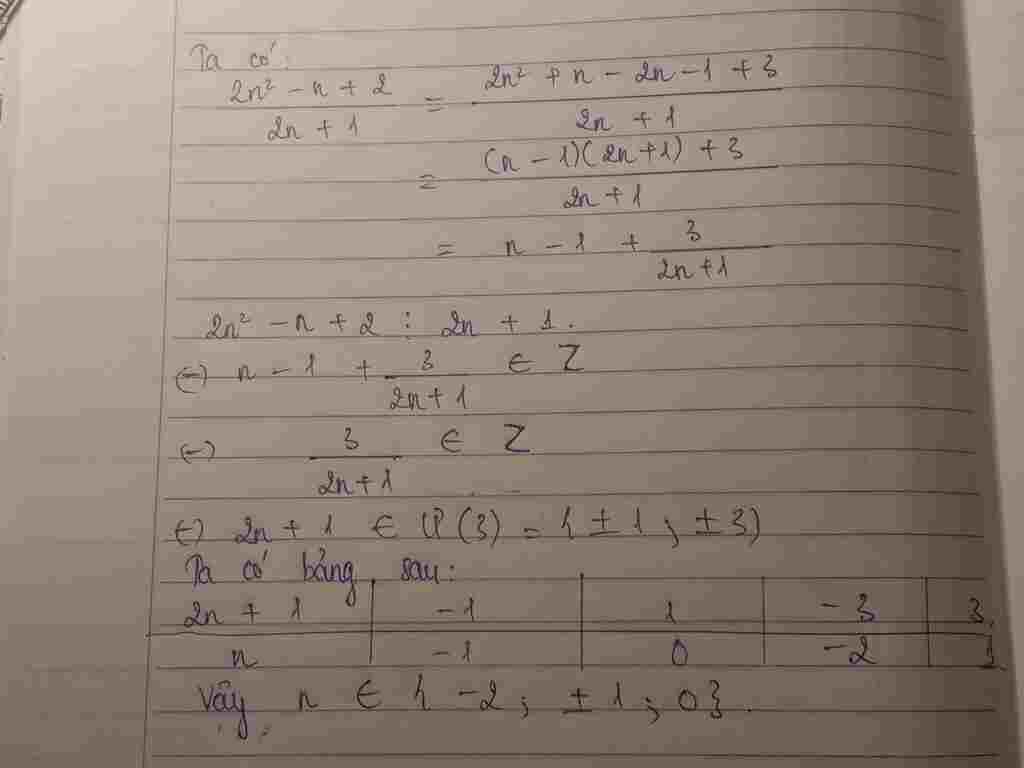 Ta có:
2n² - n + 2 / 2n + 1 = 2n² + n - 2n - 1 + 3 / 2n + 1
= (n - 1)(2n+1) + 3 / 2n + 1
= n - 1 + 3 / 2n+1
2n² - n + 2 ⋮ 2n + 1.
(-) n - 1 + 3 / 2n + 1 ∈ Z
(-) 3 / 2n+1 ∈ Z
(-) 2n + 1 ∈ Ư(3) = { ± 1 ; ± 3)
Ta có bảng sau:
2n + 1 | -1 | 1 | -3 | 3
n | -1 | 0 | -2 | 1
Vậy n ∈ { -2 ; ± 1 ; 0}.